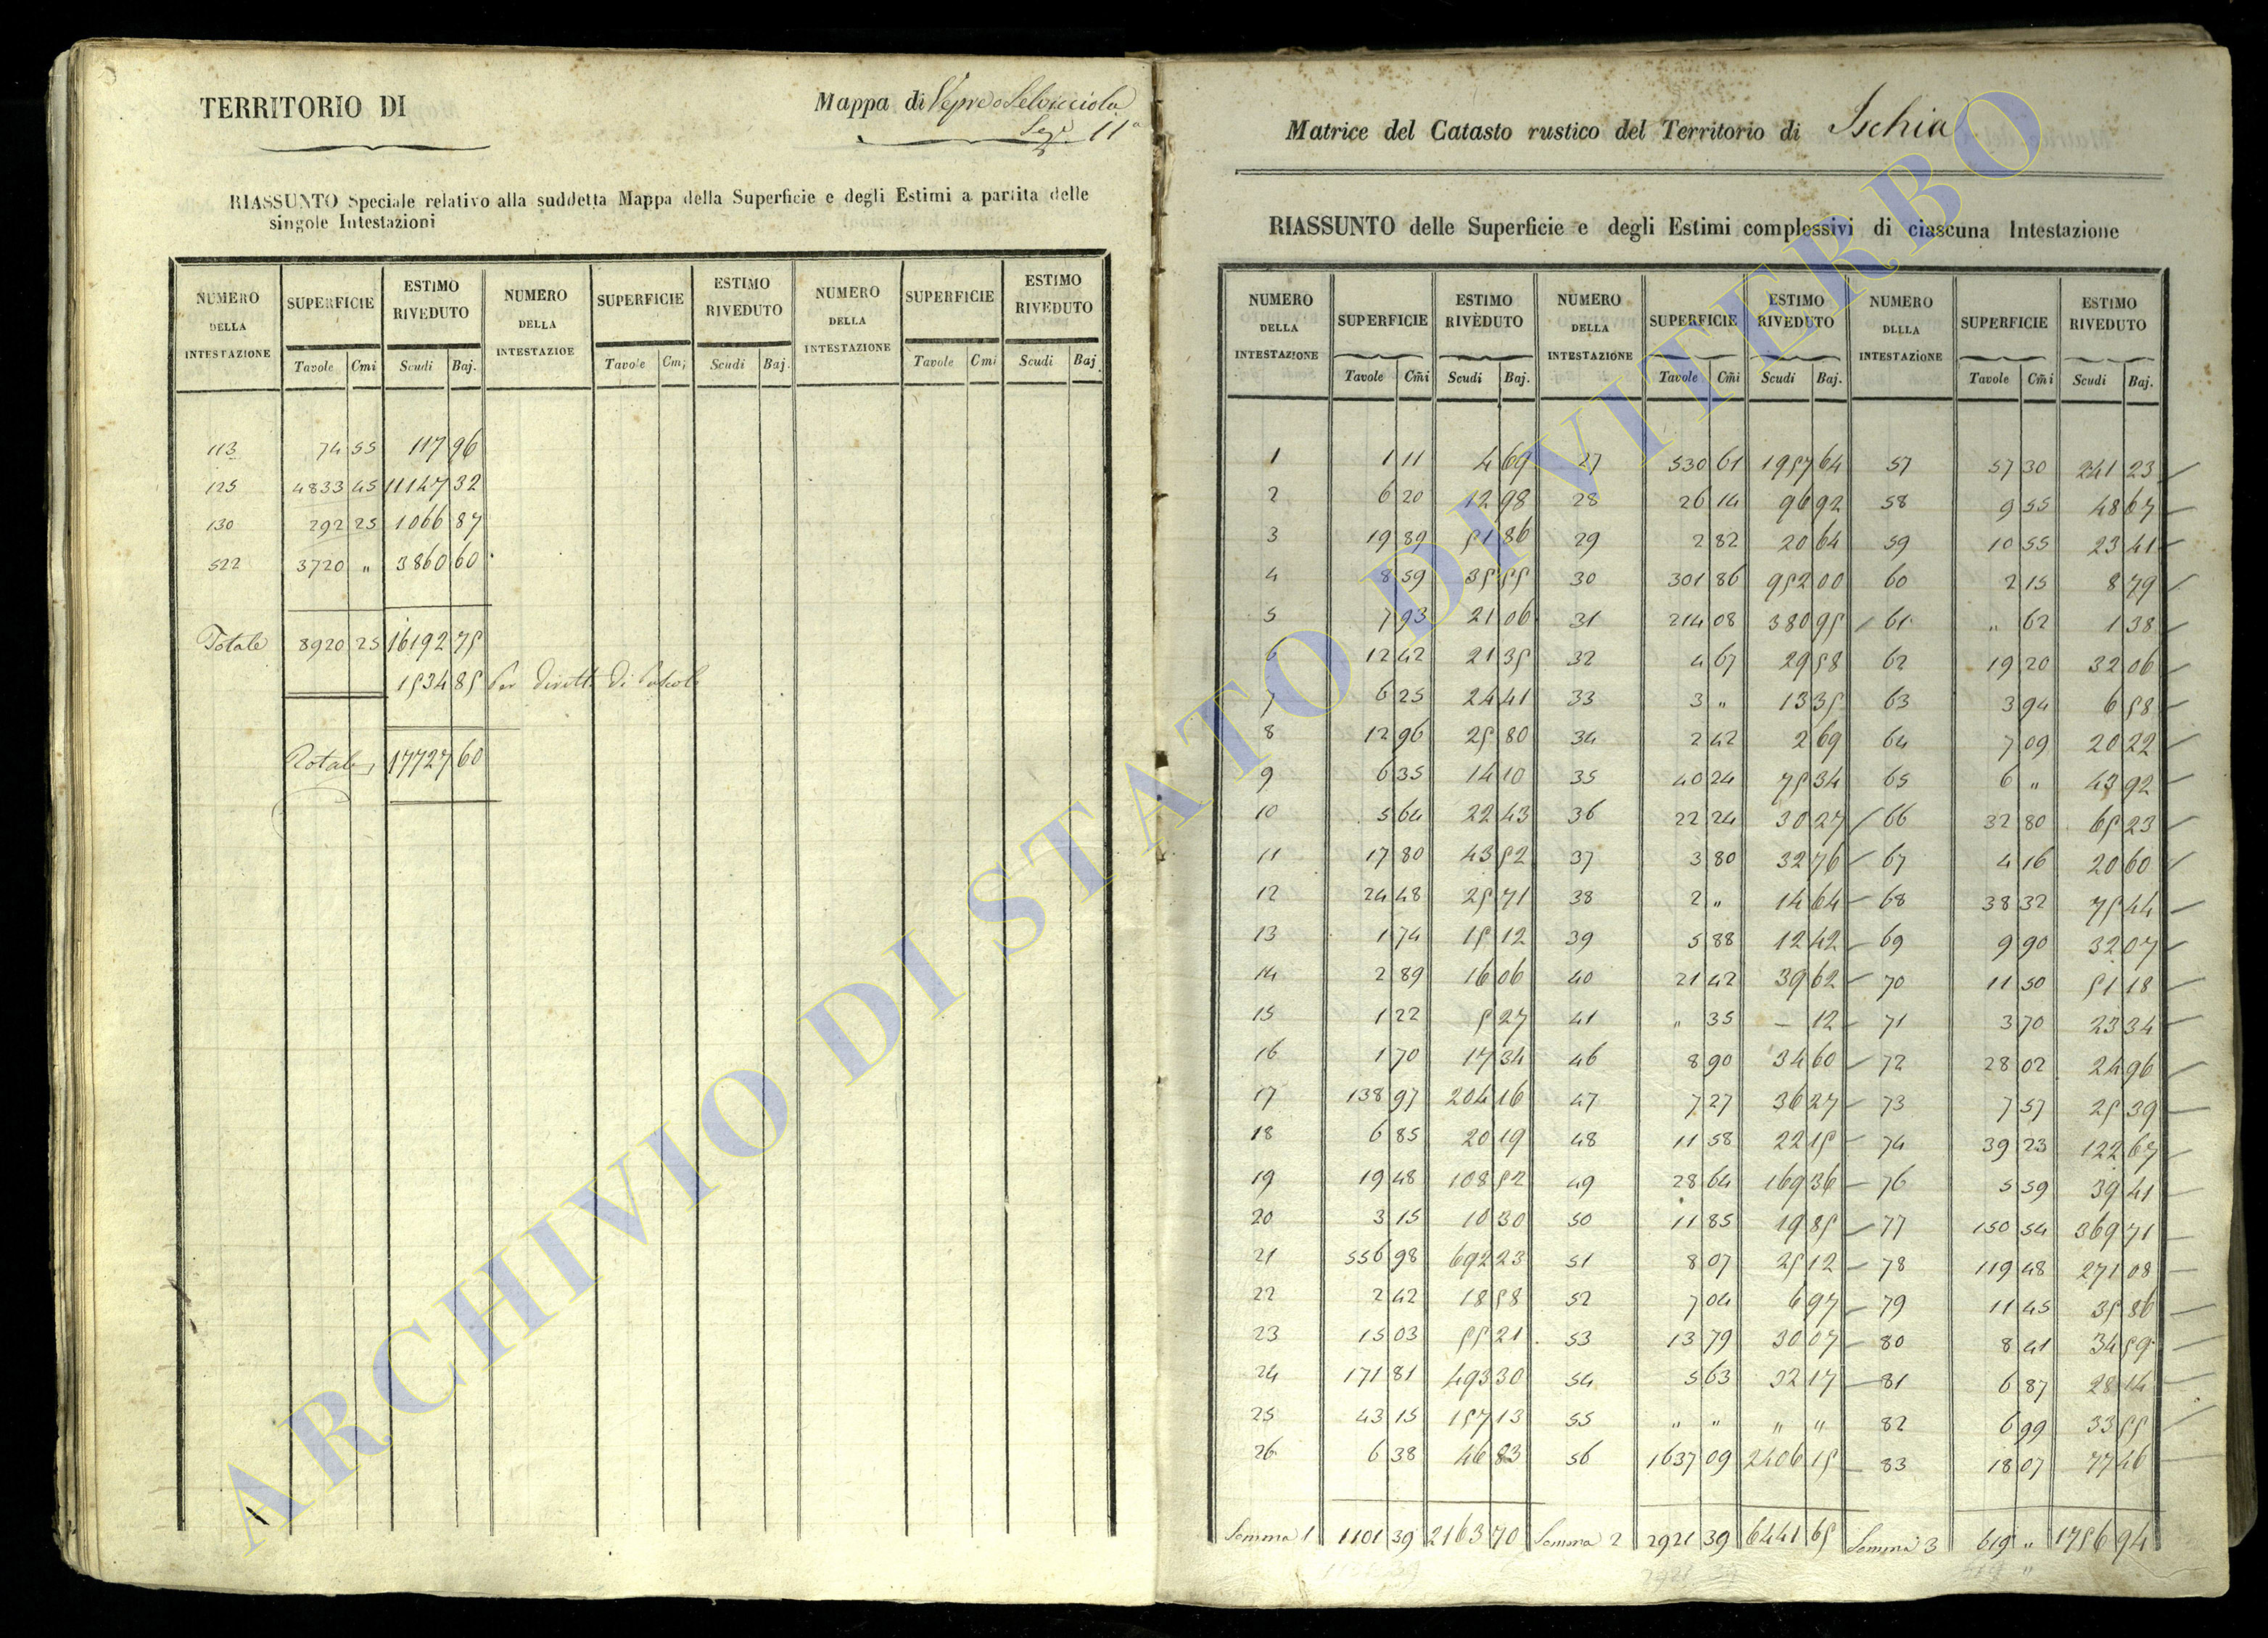 TERRITORIO DI
Mappa di Vepre o Selvicciola
Sez.e 11a
RIASSUNTO Speciale relativo alla suddetta Mappa della Superficie e degli Estimi a partita delle
singole Intestazioni
NUMERO DELLA INTESTAZIONE SUPERFICIE ESTIMO RIVEDUTO NUMERO DELLA INTESTAZIOE SUPERFICIE ESTIMO RIVEDUTO NUMERO DELLA INTESTAZIONE SUPERFICIE ESTIMO RIVEDUTO
Tavole Cmi Scudi Baj. Tavole Cmi Scudi Baj. Tavole Cmi Scudi Baj.
113 74 55 117 96
125 4833 45 11147 32
130 292 25 1066 87
522 3720 " 3860 60
Totale 8920 25 16192 75
1534 85 Per diretti di Pascolo
Totale 17727 60
Matrice del Catasto rustico del Territorio di Ischia
RIASSUNTO delle Superficie e degli Estimi complessivi di ciascuna Intestazione
NUMERO DELLA INTESTAZIONE SUPERFICIE ESTIMO RIVEDUTO NUMERO DELLA INTESTAZIONE SUPERFICIE ESTIMO RIVEDUTO NUMERO DELLA INTESTAZIONE SUPERFICIE ESTIMO RIVEDUTO
Tavole Cmi Scudi Baj. Tavole Cmi Scudi Baj. Tavole Cmi Scudi Baj.
1 1 11 4 69 27 530 61 1957 64 57 57 30 241 23
2 6 20 12 98 28 26 14 96 92 58 9 55 48 67
3 19 89 51 86 29 2 82 20 64 59 10 55 23 41
4 8 59 35 55 30 301 86 952 00 60 2 15 8 79
5 7 93 21 06 31 214 08 380 95 61 " 62 1 38
6 12 42 21 35 32 4 67 29 58 62 19 20 32 06
7 6 25 24 41 33 3 " 13 35 63 3 94 6 58
8 12 96 25 80 34 2 42 2 69 64 7 09 20 22
9 6 35 14 10 35 40 24 75 34 65 6 " 43 92
10 5 64 22 43 36 22 24 30 27 66 32 80 65 23
11 17 80 43 52 37 3 80 32 76 67 4 16 20 60
12 24 48 25 71 38 2 " 14 64 68 38 32 75 44
13 1 74 15 12 39 5 88 12 42 69 9 90 32 07
14 2 89 16 06 40 21 42 39 62 70 11 50 51 18
15 1 22 5 27 41 " 35 – 12 71 3 70 23 34
16 1 70 17 34 46 8 90 34 60 72 28 02 24 96
17 138 97 204 16 47 7 27 36 27 73 7 57 25 39
18 6 85 20 19 48 11 58 22 15 74 39 23 122 67
19 19 48 108 52 49 28 64 169 36 76 5 59 39 41
20 3 15 10 30 50 11 85 19 85 77 150 54 369 71
21 556 98 692 23 51 8 07 25 12 78 119 48 271 08
22 2 42 18 58 52 7 04 6 97 79 11 45 35 86
23 15 03 55 21 53 13 79 30 07 80 8 41 34 59
24 171 81 493 30 54 5 63 32 17 81 6 87 28 14
25 43 15 157 13 55 " " " " 82 6 99 33 55
26 6 38 46 83 56 1637 09 2406 15 83 18 07 77 46
Somma 1 1101 39 2163 70 Somma 2 2921 39 6441 65 Somma 3 619 " 1756 94
ARCHIVIO DI STATO DI VITERBO